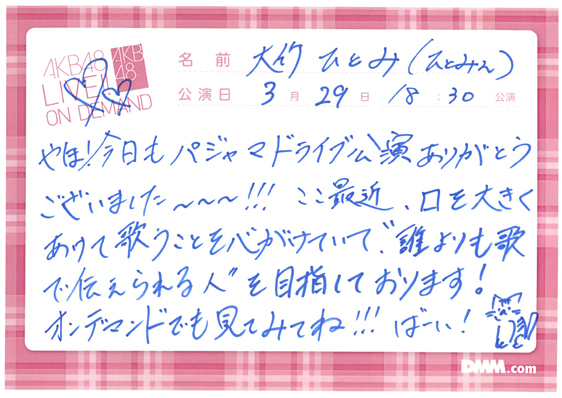 AKB48
LIVE!!
ON DEMAND
AKB
48
名前 大竹 ひとみ (ひとみん)
公演日 3月29日 18:30 公演
やほ! 今日もパジャマドライブ公演ありがとう
ございました〜〜〜!!! ここ最近、口を大きく
あけて歌うことを心がけていて、"誰よりも歌
で伝えられる人"を目指しております!
オンデマンドでも見てみてね!!! ばーい!
DMM.com